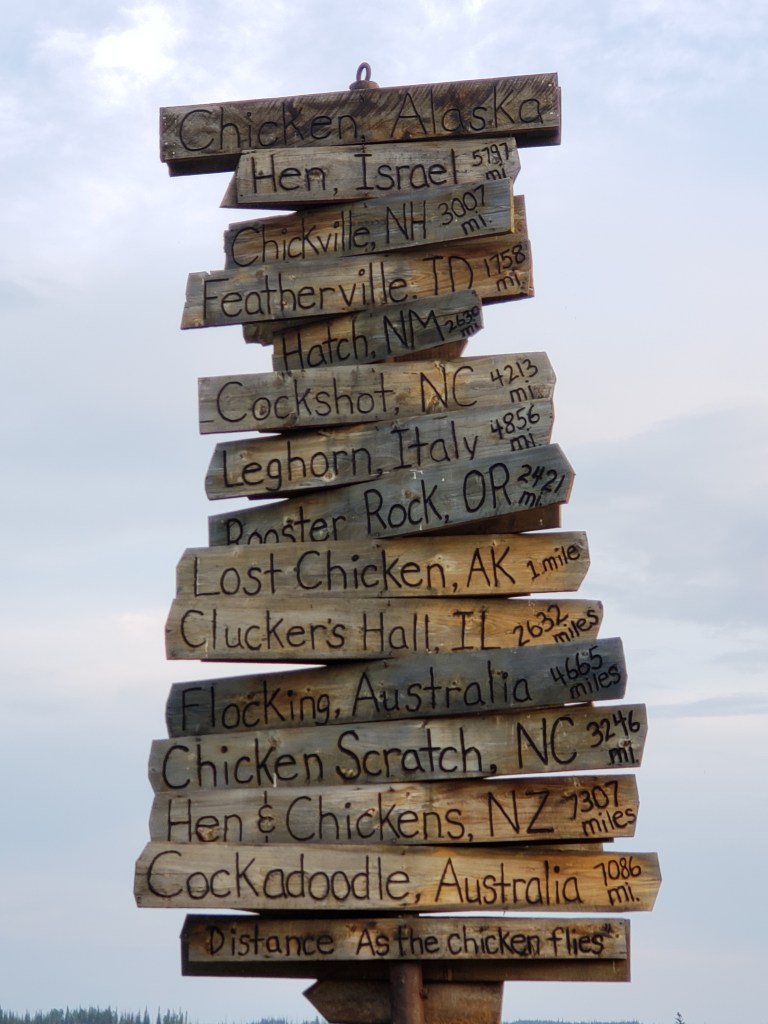 Chicken, Alaska
Hen, Israel 5797 mi.
Chickville, NH 3007 mi.
Featherville, ID 1758 mi.
Hatch, NM 2630 mi.
Cockshot, NC 4213 mi.
Leghorn, Italy 4856 mi.
Rooster Rock, OR 2421 mi.
Lost Chicken, AK 1 mile
Clucker's Hall, IL 2632 miles
Flocking, Australia 4665 miles
Chicken Scratch, NC 3246 mi.
Hen & Chickens, NZ 7307 miles
Cockadoodle, Australia 7086 mi.
Distance As the chicken flies"